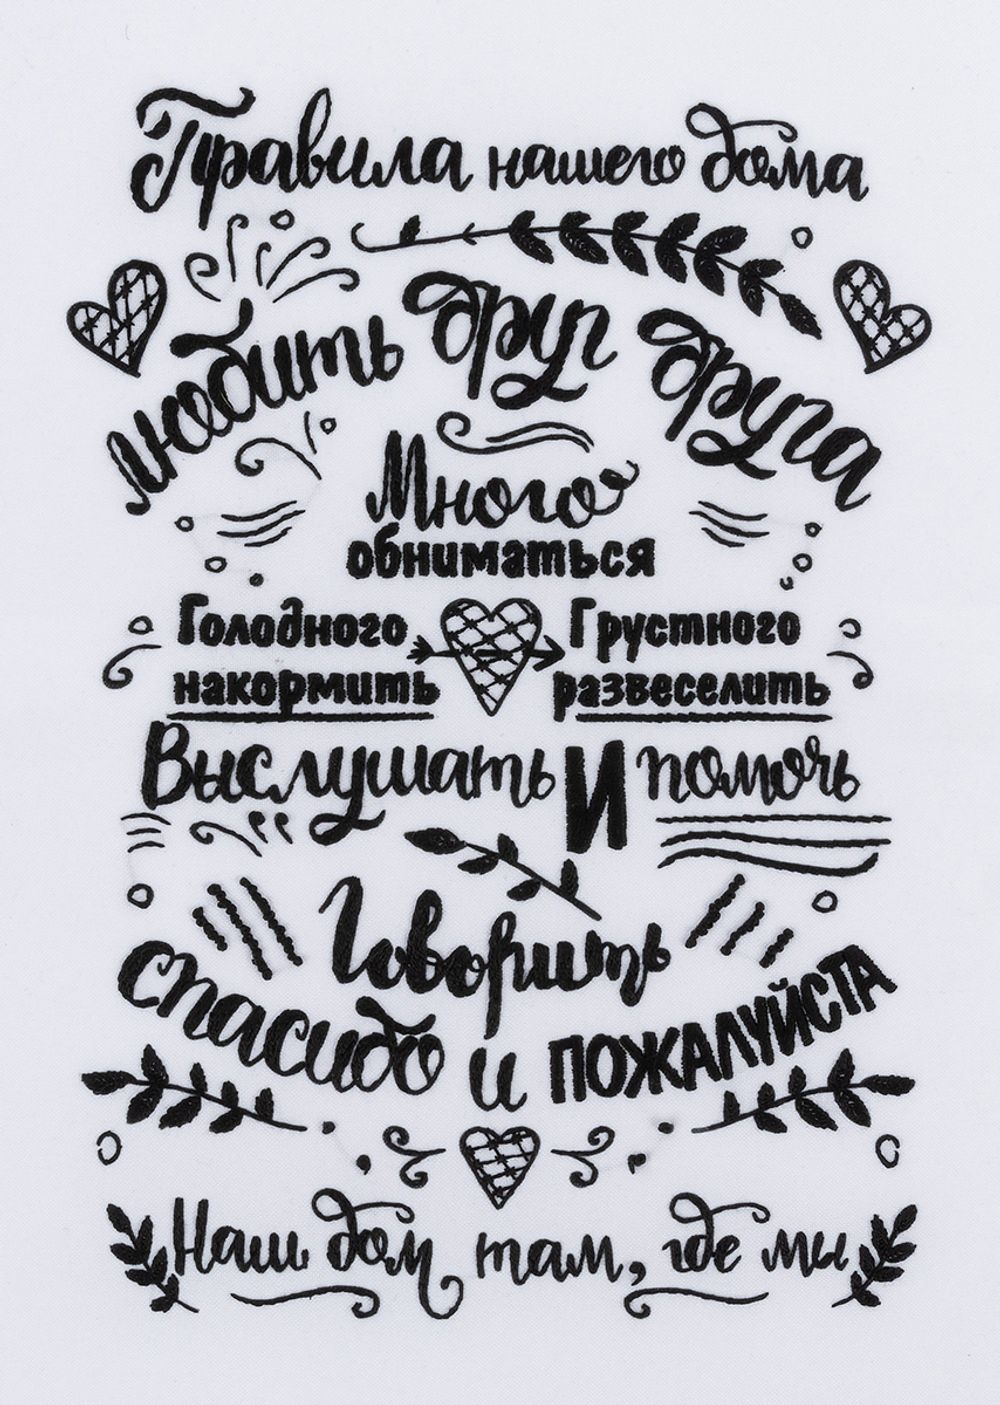 Правила нашего дома
любить друг друга
Много
обниматься
Голодного Грустного
накормить развеселить
Выслушать И помочь
Говорить
спасибо и ПОЖАЛУЙСТА
Наш дом там, где мы